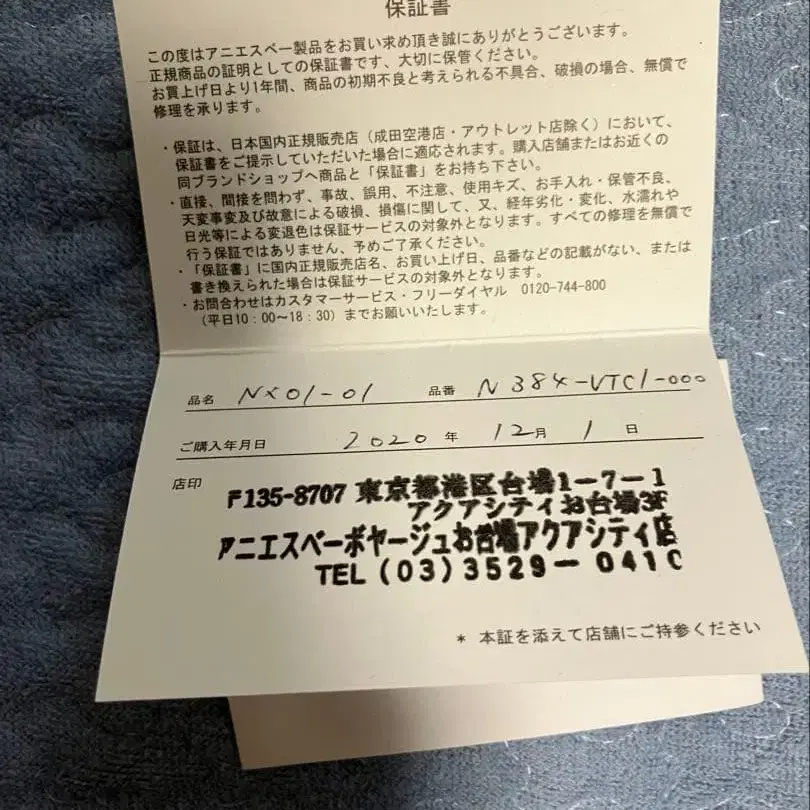 保証書
この度はアニエスベー製品をお買い求め頂き誠にありがとうございます。
正規商品の証明としての保証書です、大切に保管ください。
お買上げ日より1年間、商品の初期不良と考えられる不具合、破損の場合、無償で
修理を承ります。
・保証は、日本国内正規販売店（成田空港店・アウトレット店除く）において、
保証書をご提示していただいた場合に適応されます。購入店舗またはお近くの
同ブランドショップへ商品と「保証書」をお持ち下さい。
・直接、間接を問わず、事故、誤用、不注意、使用キズ、お手入れ・保管不良、
天変事変及び故意による破損、損傷に関して、又、経年劣化・変化、水濡れや
日光等による変退色は保証サービスの対象外となります。すべての修理を無償で
行う保証ではありません、予めご了承ください。
・「保証書」に国内正規販売店名、お買い上げ日、品番などの記載がない、または
書き換えられた場合は保証サービスの対象外となります。
・お問合わせはカスタマーサービス・フリーダイヤル 0120-744-800
（平日10：00〜18：30）までお願いいたします。
品名 NX01-01 品番 N384-VTC1-000
ご購入年月日 2020 年 12 月 1 日
店印 〒135-8707 東京都港区台場1－7－1
アクアシティお台場3F
アニエスベーボヤージュお台場アクアシティ店
TEL (03) 3529－0410
* 本証を添えて店舗にご持参ください